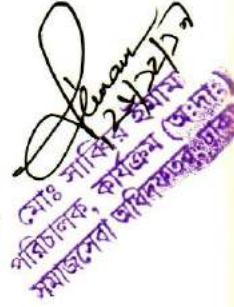 ১২/১২/১৭
মোঃ সাব্বির ইমাম
পরিচালক, কার্যক্রম (অঃদাঃ)
সমাজসেবা অধিদফতর, ঢাকা